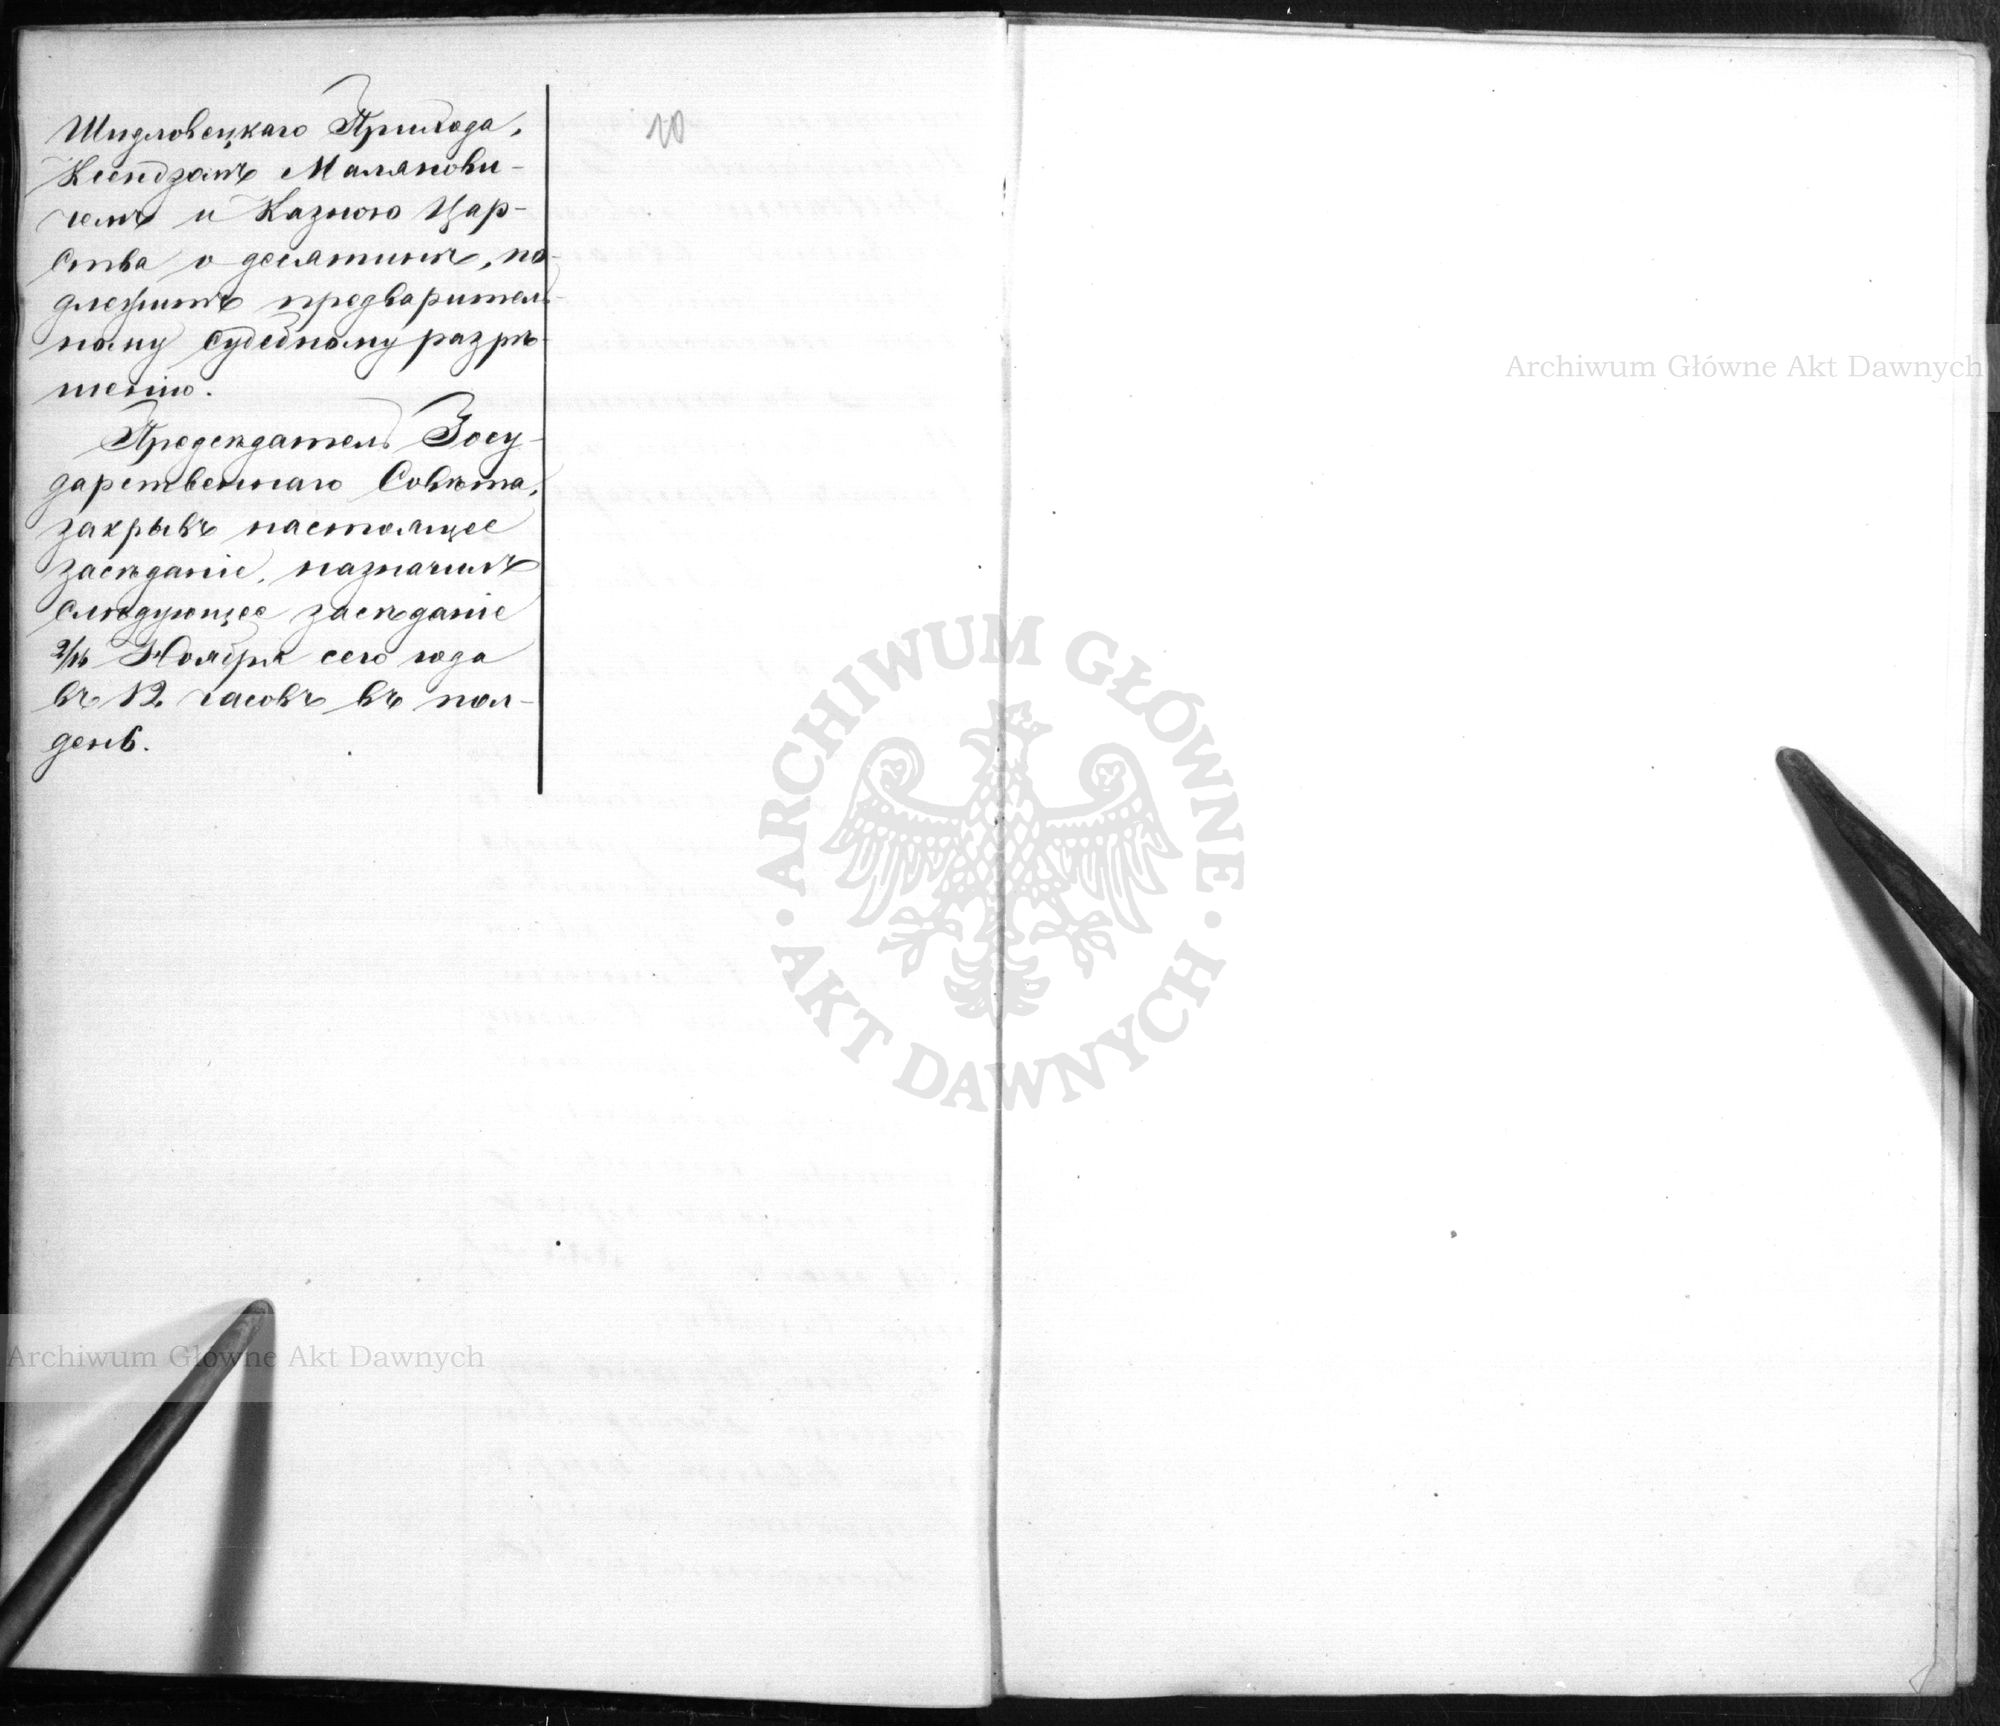 10
Шидловецкаго Прихода,
Ксендзомъ Маляновы-
чемъ и Казною Цар-
ства о десятинѣ, по-
длежитъ предваритель-
ному судебному разрѣ-
шенію.
Предсѣдатель Госу-
дарственнаго Совѣта,
закрывъ настоящее
засѣданіе, назначилъ
слѣдующее засѣданіе
Ноября сего года
въ 12 часовъ въ пол-
день.
Archiwum Główne Akt Dawnych
Archiwum Główne Akt Dawnych
ARCHIWUM GŁÓWNE · AKT DAWNYCH ·